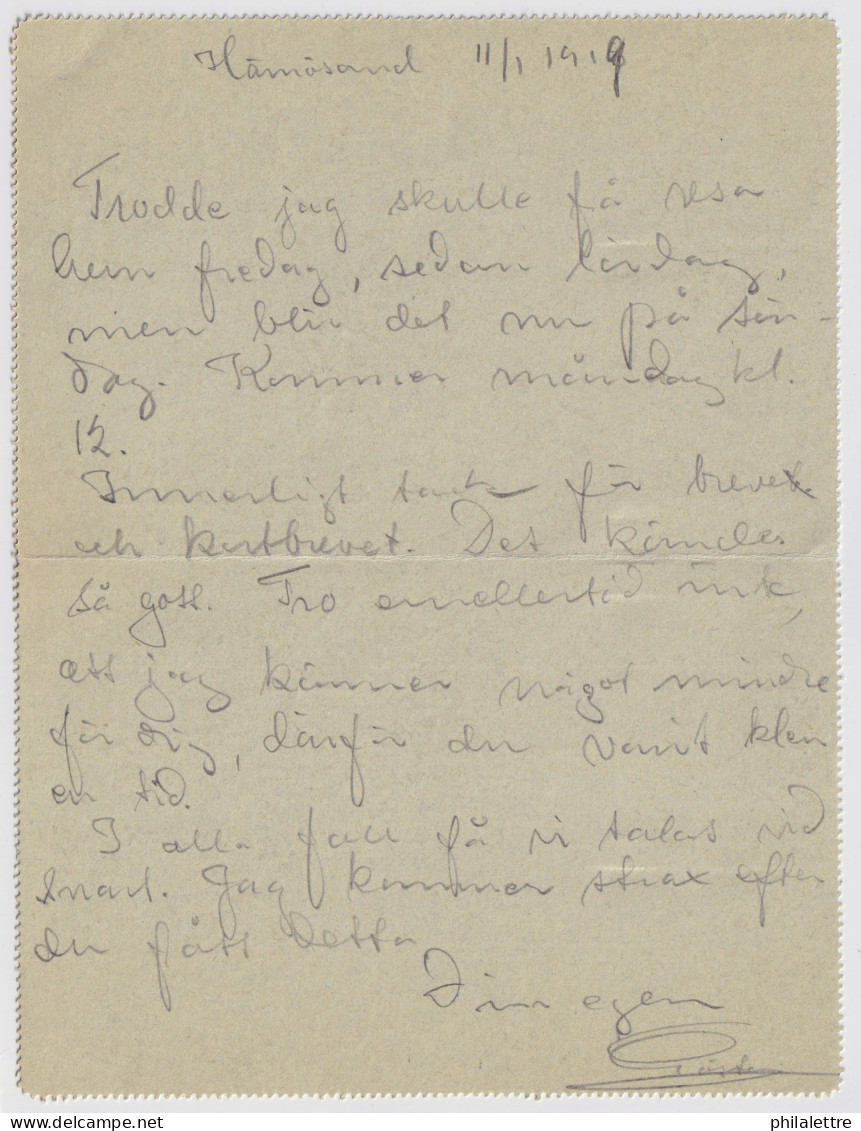 Härnösand 11/1 1919
Trodde jag skulle få resa
hem fredag, sedan lördag,
men blir det nu på sön-
dag. Kommer måndag kl.
12.
Innerligt tack för brevet
och kortbrevet. Det kändes
så gott. Tro emellertid
att jag känner något mindre
för dig, därför du varit klen
en tid.
I alla fall få vi talas vid
snart. Jag kommer strax efter
du fått detta
Din egen
Gösta
philalettre